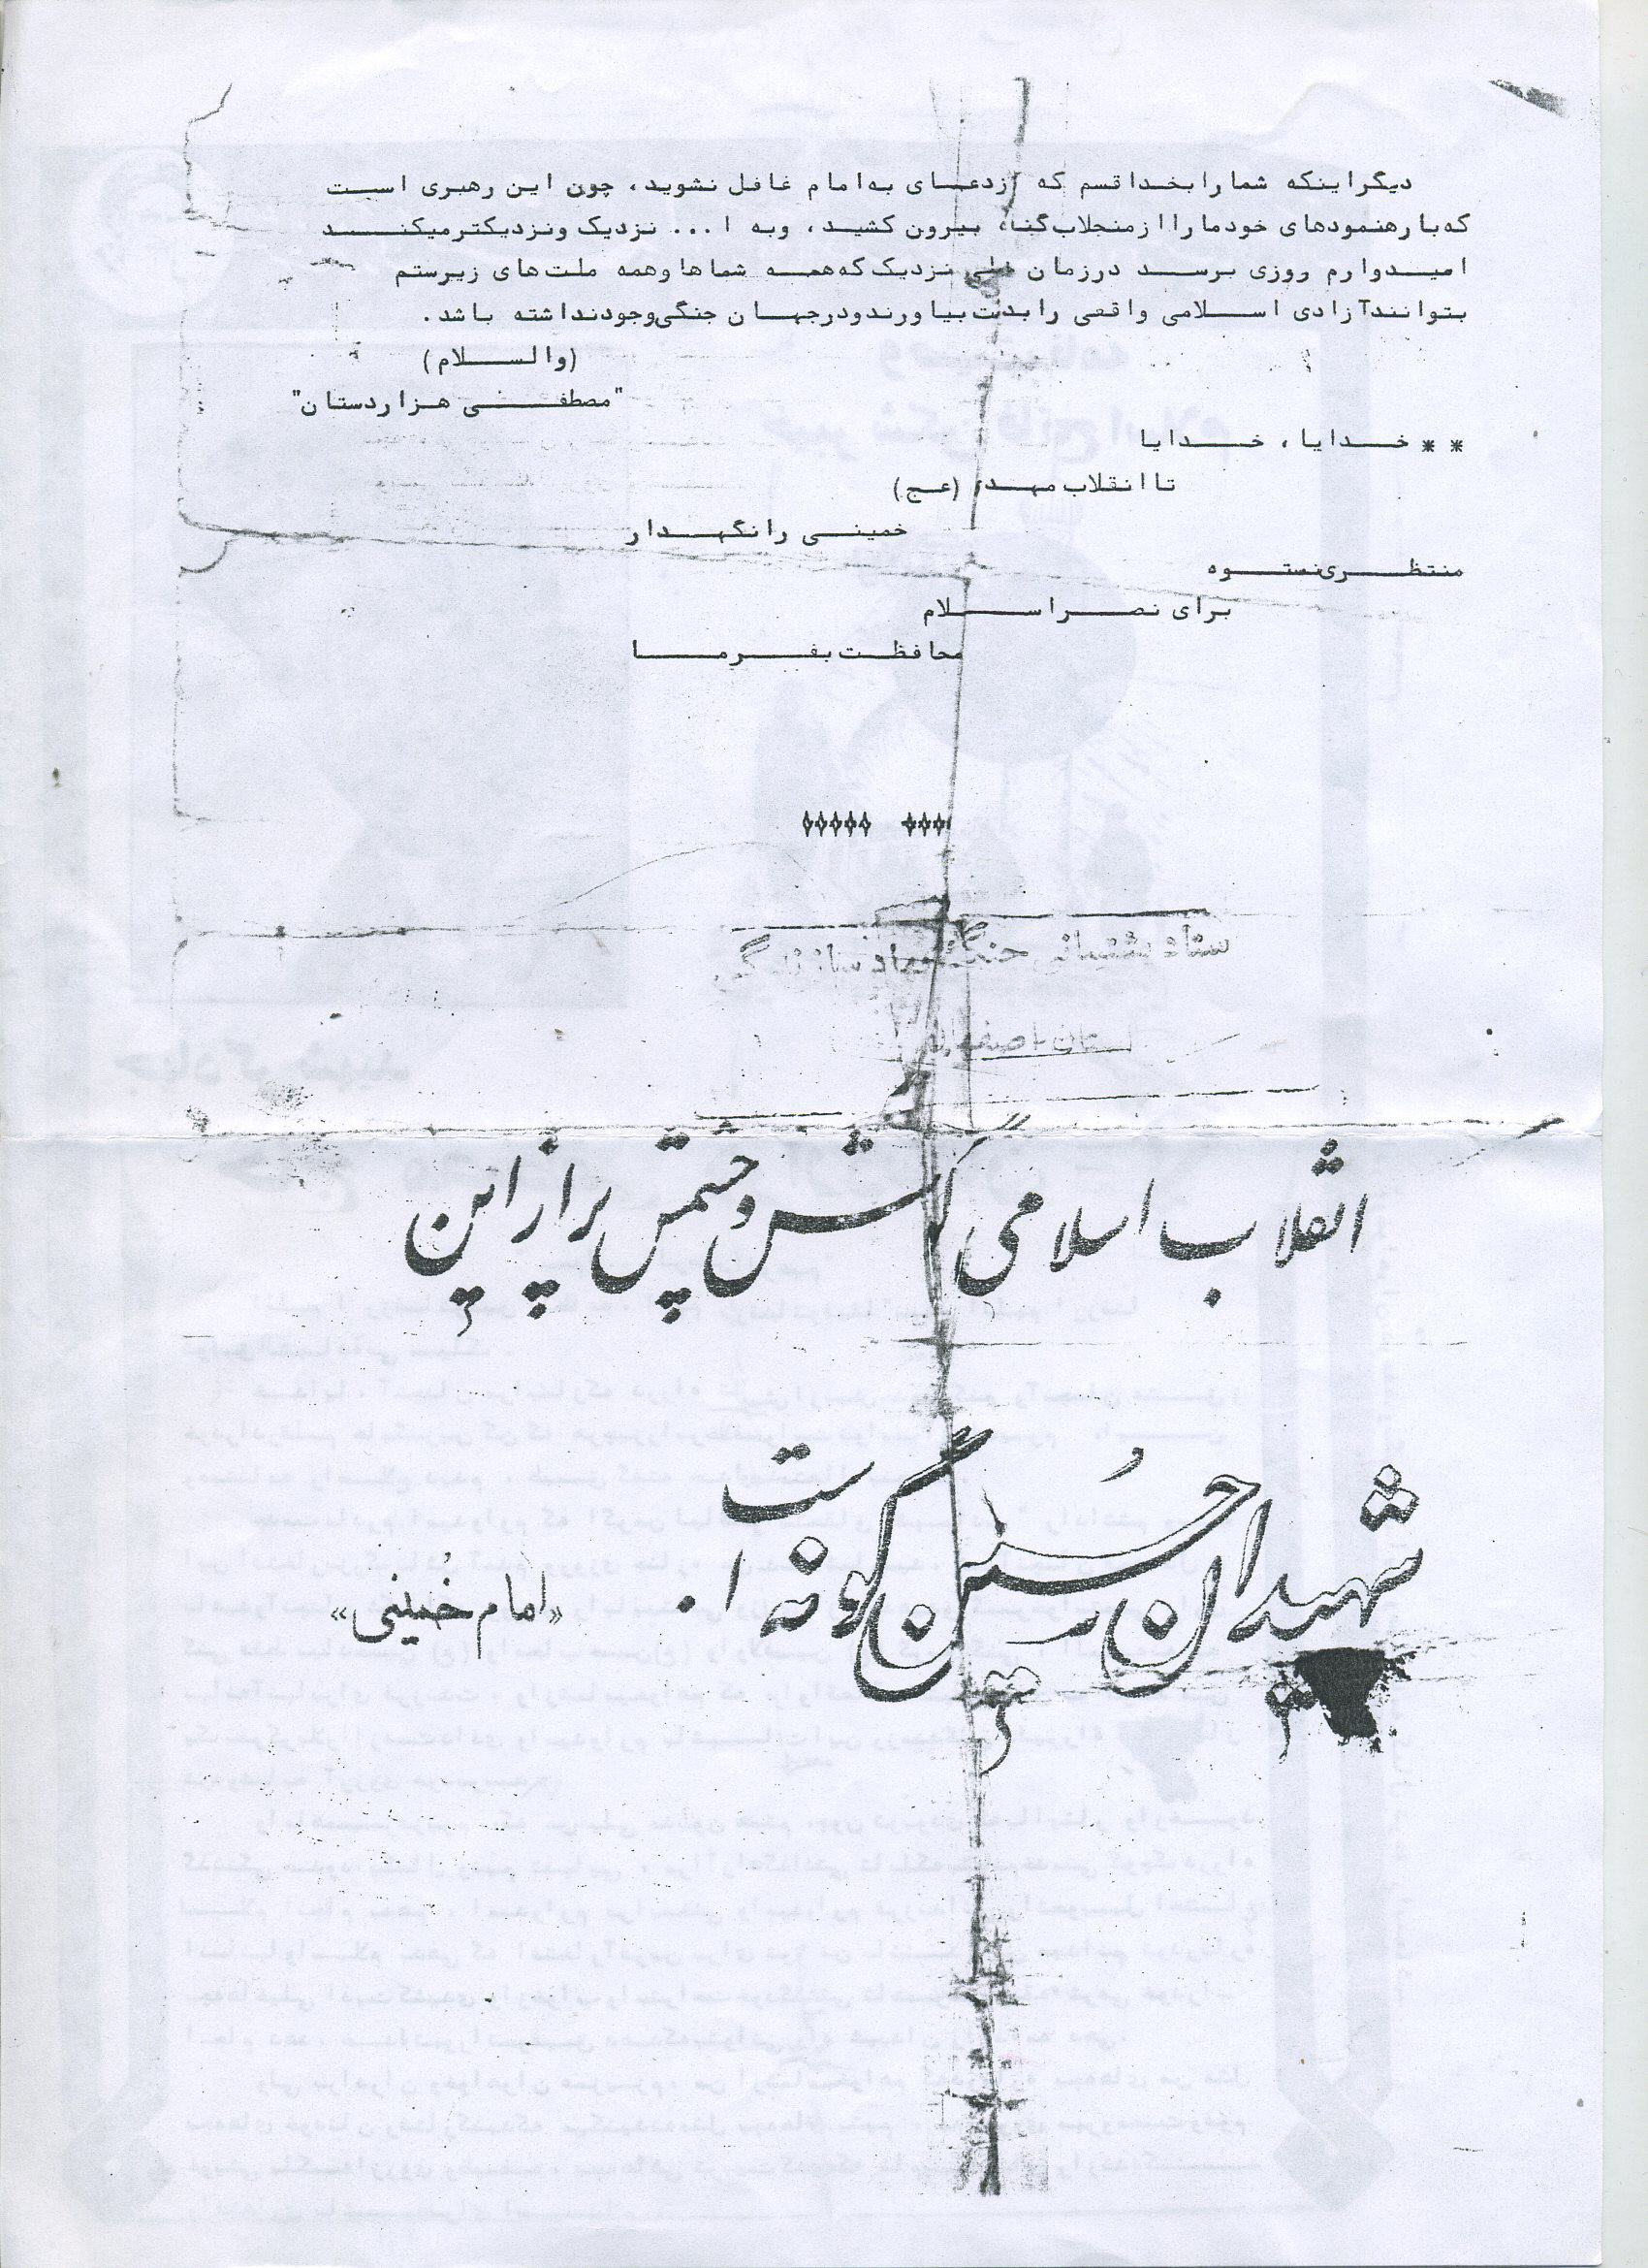 دیگر اینکه شما را بخدا قسم که از دعای به امام غافل نشوید، چون این رهبری است
که با رهنمودهای خود ما را از منجلاب گناه بیرون کشید، و به ا... نزدیک و نزدیکتر میکند
امیدوارم روزی برسد در زمان خیلی نزدیک که همه شماها و همه ملت‌های زیر ستم
بتوانند آزادی اسلامی واقعی را بدست بیاورند و در جهان جنگی وجود نداشته باشد.
(والسلام)
"مصطفی هزاردستان"
** خدایا، خدایا
تا انقلاب مهدی (عج)
خمینی را نگهدار
منتظری نستوه
برای نصر اسلام
محافظت بفرما
ستاد پشتیبانی جنگ جهاد سازندگی
استان اصفهان
انقلاب اسلامی گوش و چشمش پر از این
شهیدان حسین گونه است.
«امام خمینی»